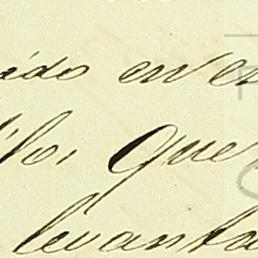 ido en e
lo, que
levanta